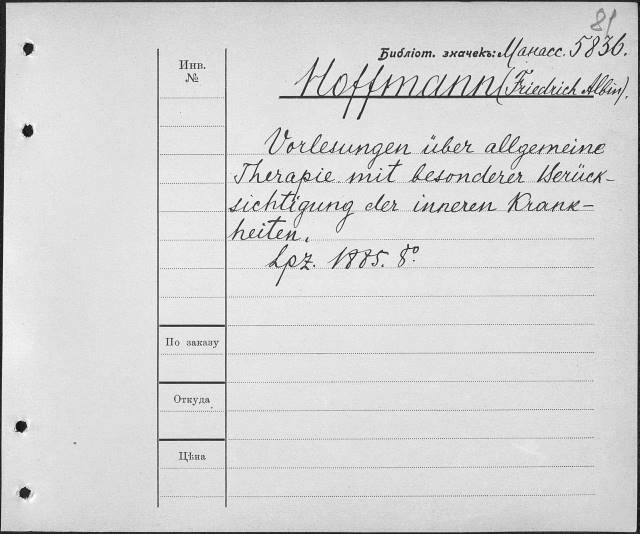 81
Библіот. значекъ: Манасс. 5836.
Инв.
№
Hoffmann (Friedrich Albin).
Vorlesungen über allgemeine
Therapie mit besonderer Berück-
sichtigung der inneren Krank-
heiten.
Lpz. 1885. 8º.
По заказу
Откуда
Цѣна